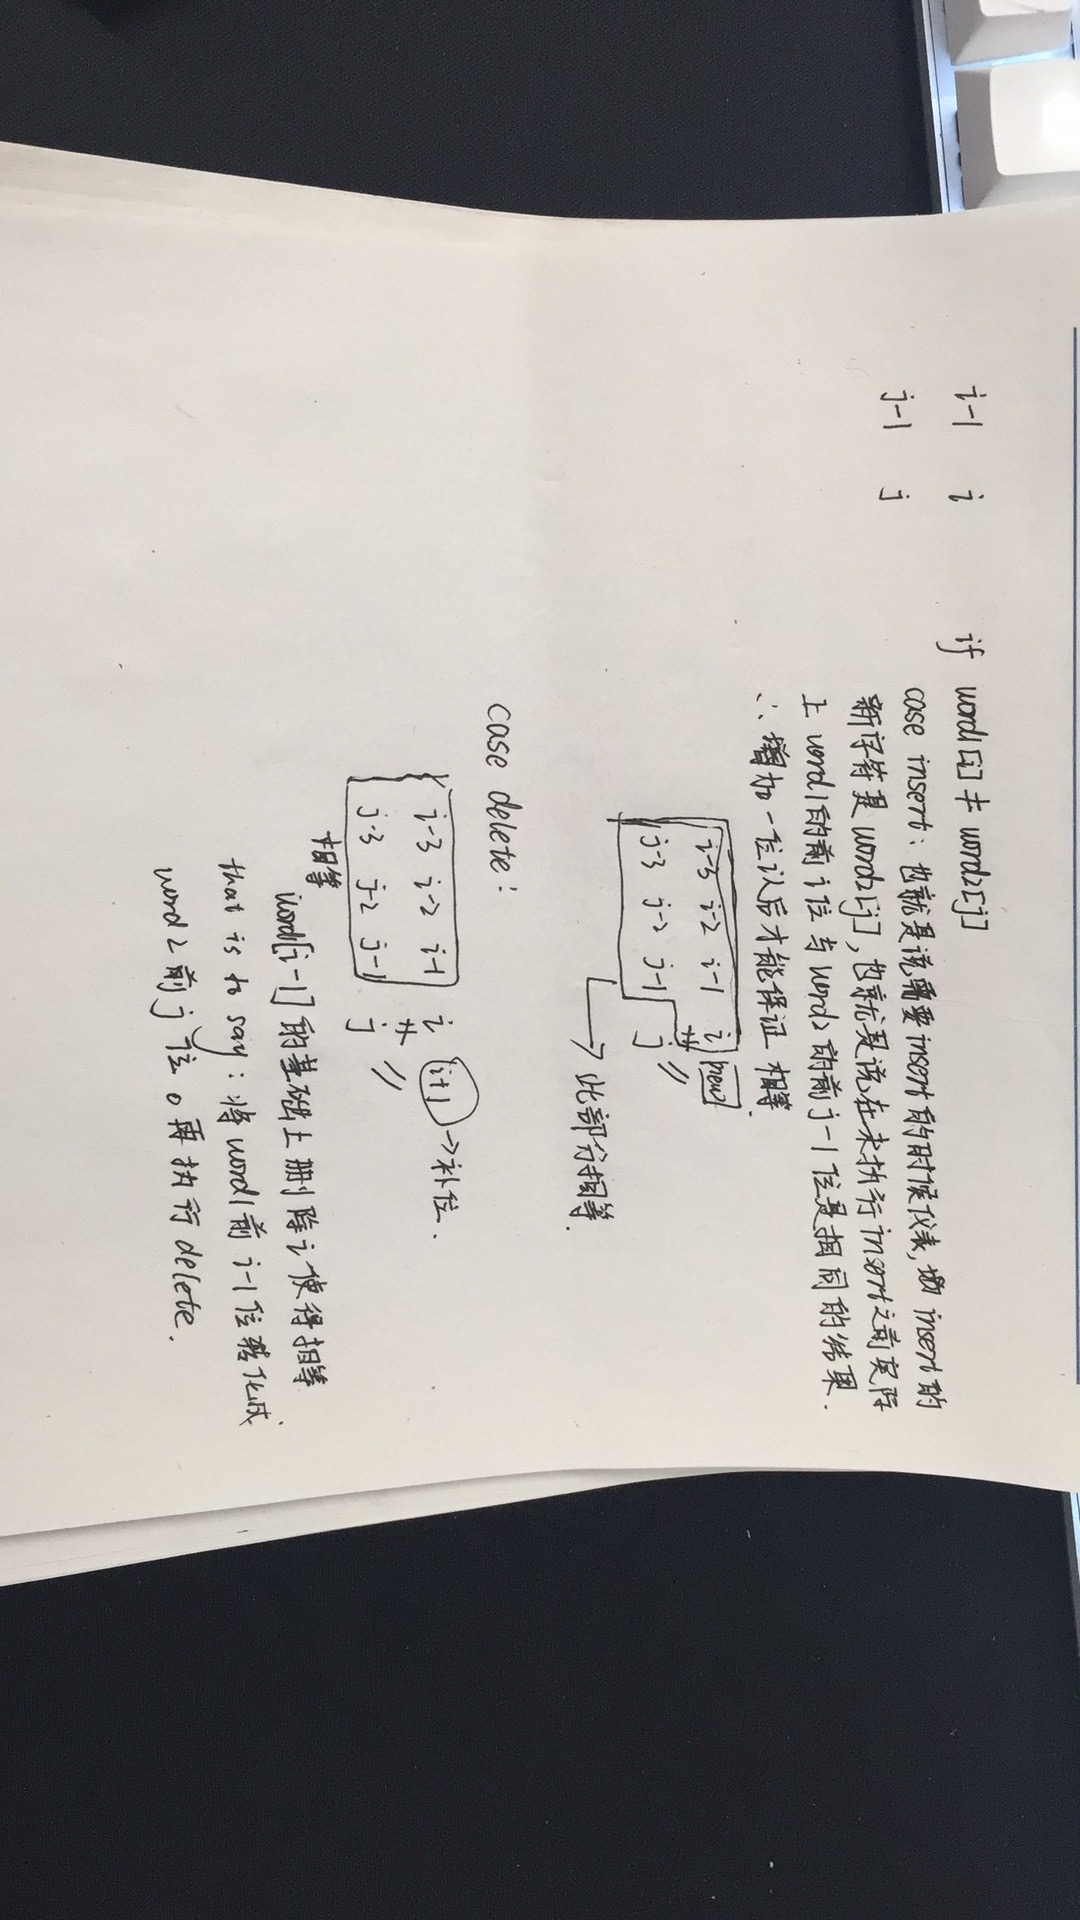 i-1 i
j-1 j
if word1[i] ≠ word2[j]
case insert: 也就是说需要insert的时候代表, insert的
新字符是word2[j], 也就是说在未执行insert之前实际
上word1的前i位与word2的前j-1位是相同的结果.
∴ 增加一位以后才能保证相等.
i-3 i-2 i-1 i new
j-3 j-2 j-1 j
→ 此部分相等.
case delete:
i-3 i-2 i-1 i i+1 →补位.
j-3 j-2 j-1 j
相等
word1[i-1]的基础上删除i使得相等
that is to say: 将word1前i-1位转化成
word2前j位。再执行delete.